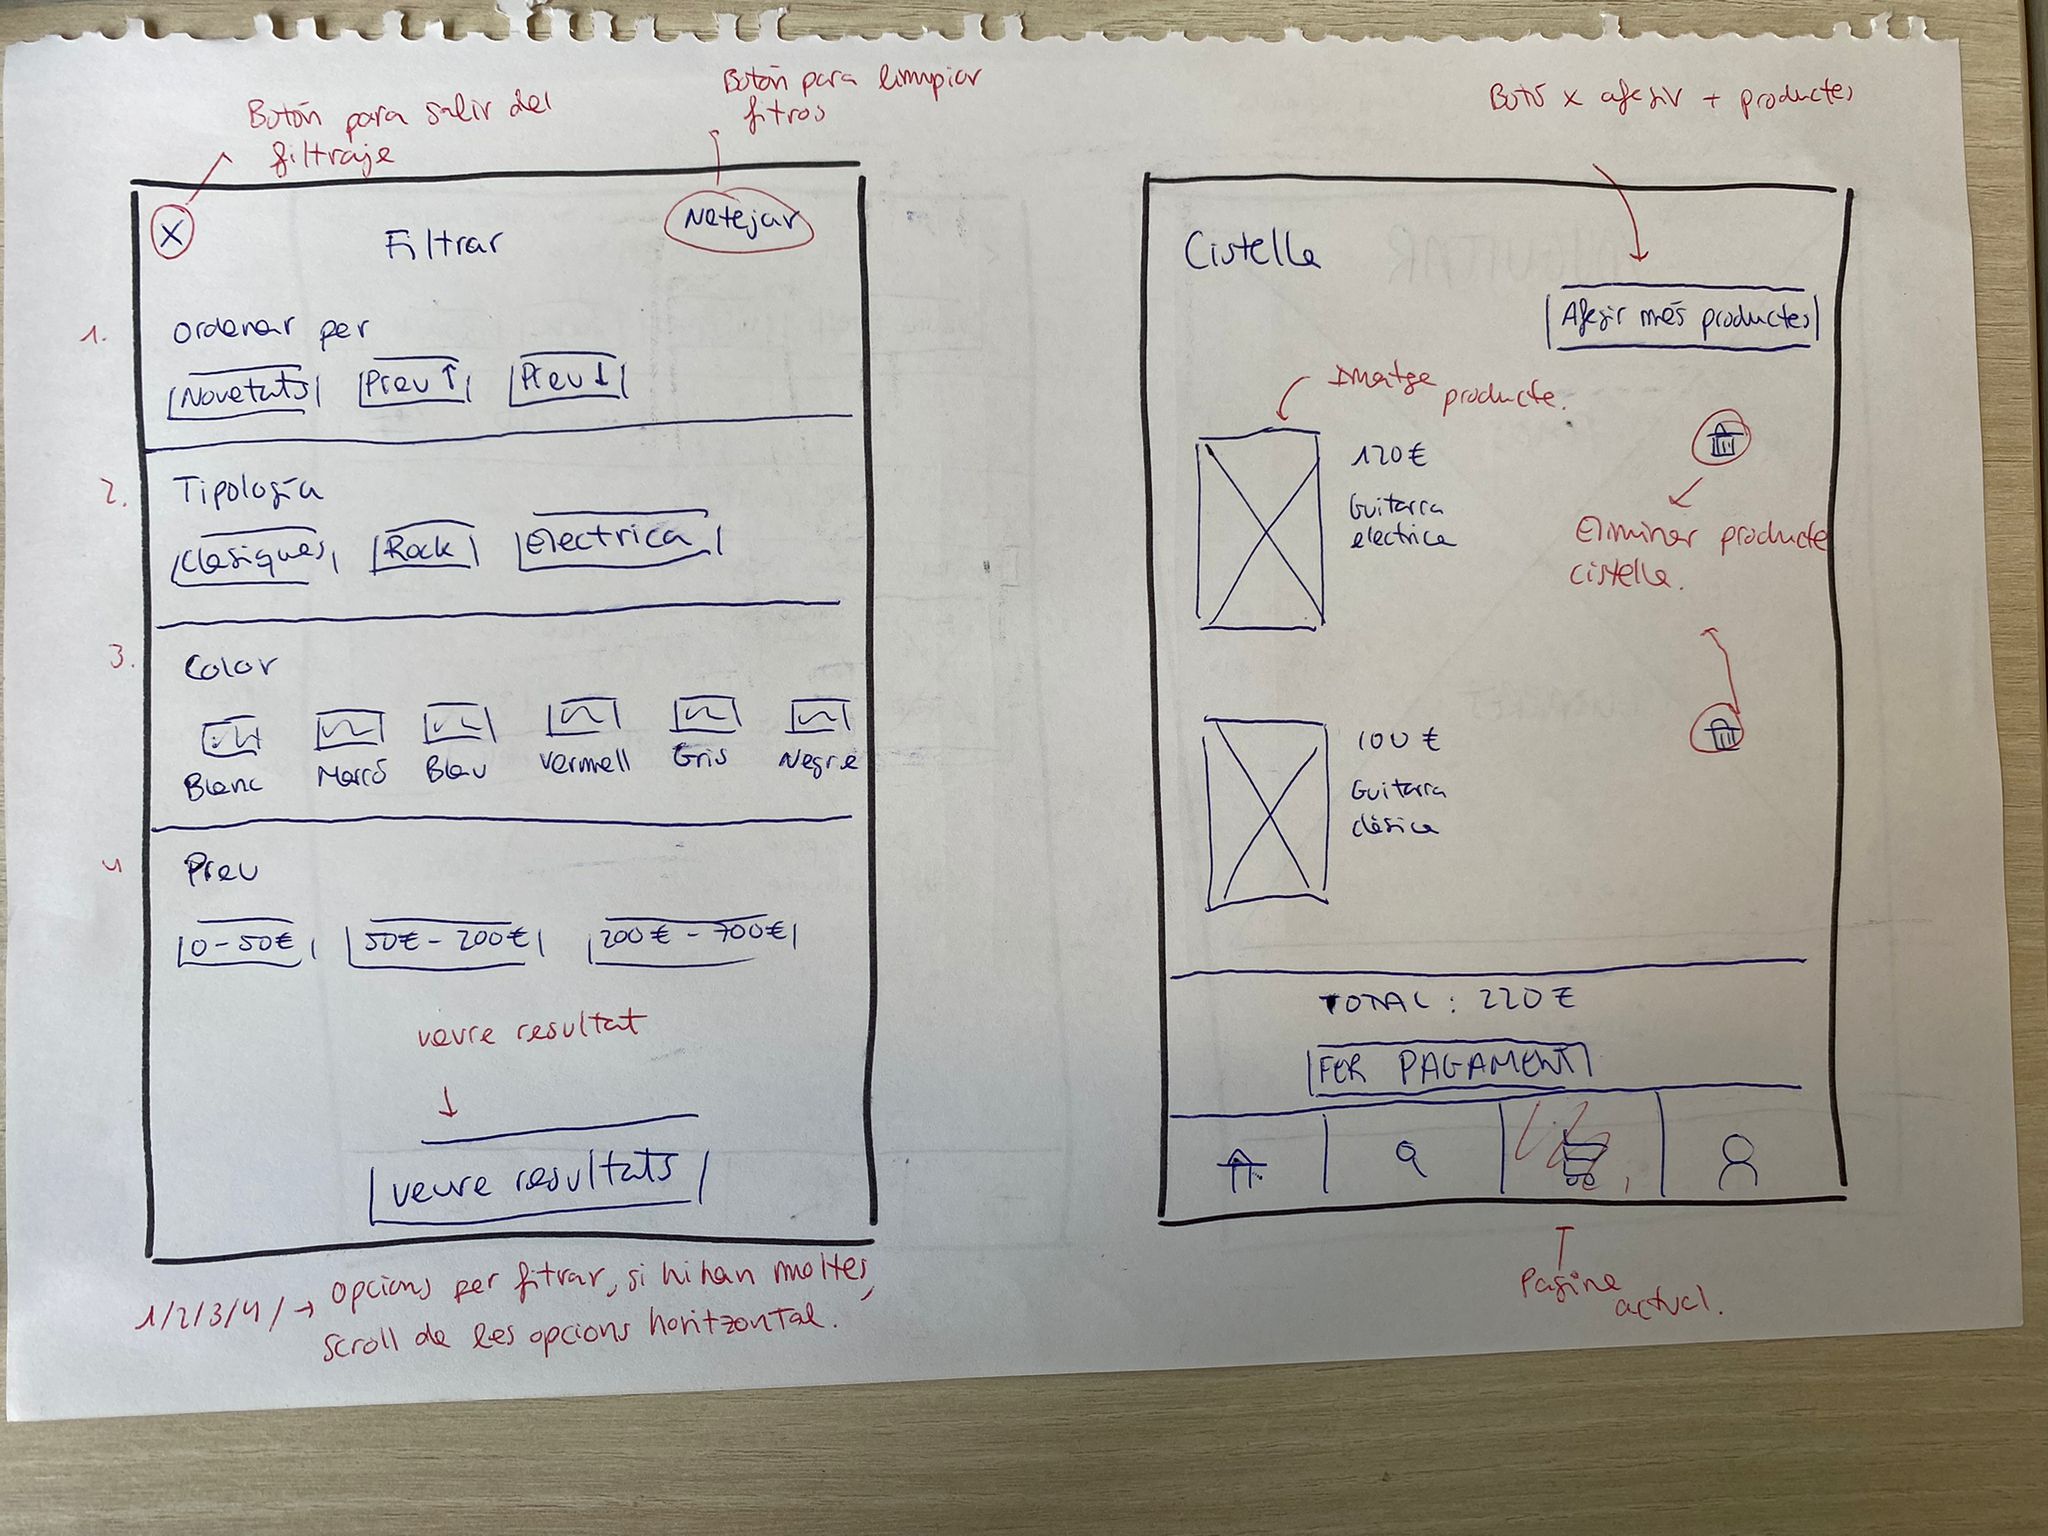 Botón para salir del
filtraje
Botón para limpiar
fitros
X
Filtrar
Netejar
1.
Ordenar per
Novetats
Preu ↑
Preu ↓
2.
Tipología
Clàsiques
Rock
Electrica
3.
Color
Blanc
Marró
Blau
Vermell
Gris
Negre
4
Preu
0-50€
50€-200€
200€-700€
veure resultat
veure resultats
1/2/3/4/→ opcions per fitrar, si hi han moltes,
scroll de les opcions horitzontal.
Botó x afegir + productes
Cistella
Afegir més productes
Imatge
producte.
120€
Guitarra
electrica
Eliminar producte
cistella.
100€
Guitarra
clàsica
TOTAL: 220€
FER PAGAMENT
Pagina
actual.